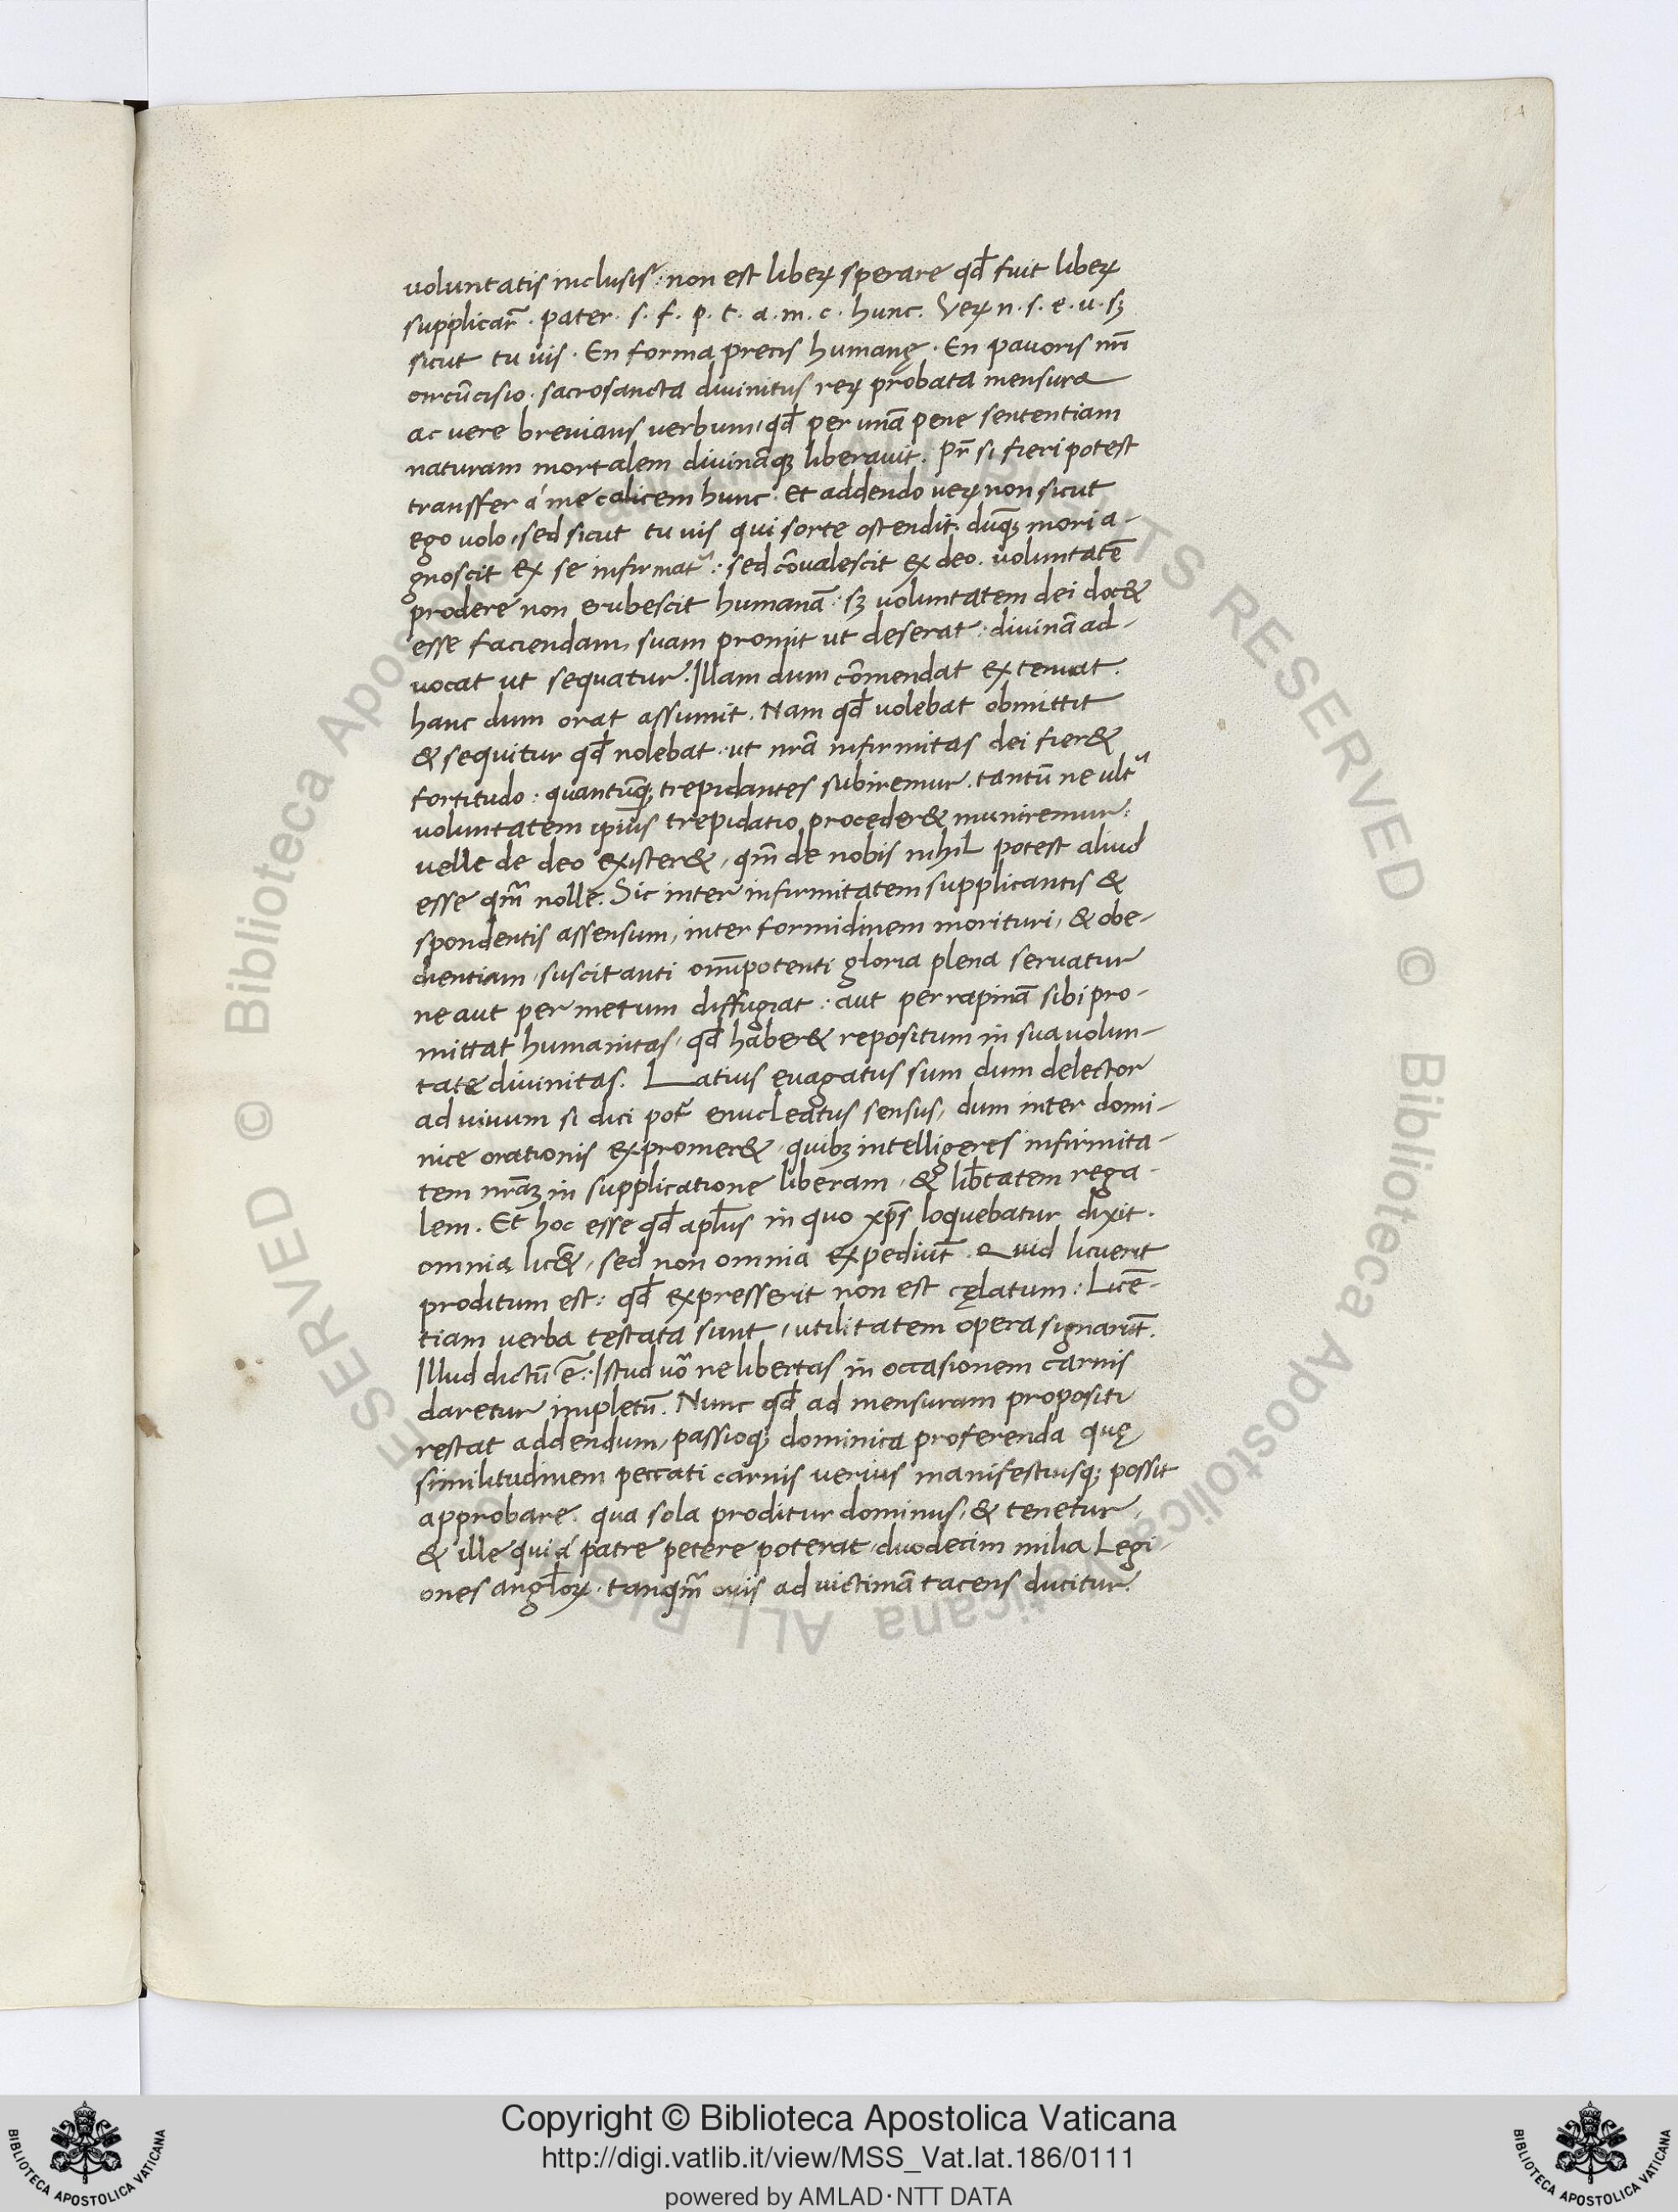 voluntatis inclusis̃: non est liberꝝ sperare qd̃ fuit liberꝝ
supplicar̃. pater. s. f. p. t. a. m. c. hunc. Verꝝ n. s. e. u. sꝫ
sicut tu uis. En forma precis humanę. En pavoris nr̃i
circũcisio. sacrosancta divinitus rerꝝ probata mensura
ac vere brevians verbum, qd̃ per unã pene sententiam
naturam mortalem divinãqꝫ liberavit. Pr̃ si fieri potest
transffer á me calicem hunc. et addendo verꝝ non sicut
ego volo, sed sicut tu vis qui sorte ostendit. dũqꝫ mori a-
gnoscit ex se infirmatᷣ: sed cõvalescit ex deo. voluntatẽ
prodere non erubescit humanã: sꝫ voluntatem dei doc&
esse faciendam, suam promit ut deserat: divinã ad-
vocat ut sequatur. Illam dum cõmendat extenuat.
hanc dum orat assumit. Nam qd̃ volebat obmittit
& sequitur qd̃ nolebat: ut nr̃a infirmitas dei fier&
fortitudo: quantũqꝫ trepidantes subiremur. tantũ ne ultᷓ
voluntatem ip̃ius trepidatio proceder& muniremur:
velle de deo exister&, qm̃ de nobis nihil potest aliud
esse qm̃ nolle. Sic inter infirmitatem supplicantis &
spondentis assensum, inter formidinem morituri, & obe-
dientiam, suscitanti om̃ipotenti gloria plena servatur
ne aut per metum diffugiat: aut per rapinã sibi pro-
mittat humanitas, qd̃ haber& repositum in sua volun-
tate divinitas. Latius evagatus sum dum delector
ad vivum si dici potᷤ enucleatus sensus, dum inter domi-
nice orationis expromer&, quibꝫ intelligeres infirmita-
tem nr̃aꝫ in supplicatione liberam, & lib̃tatem rega-
lem. Et hoc esse qd̃ apl̃us in quo xp̃s loquebatur dixit.
omnia lic&̃, sed non omnia expediũt. Quid licuerit
proditum est: qd̃ expresserit non est cęlatum: Licẽ-
tiam verba testata sunt, utilitatem opera signarũt.
Illud dictũ ẽ: Istud vᷓo ne libertas in occasionem carnis
daretur impletũ. Nunc qd̃ ad mensuram propositi
restat addendum, passioqꝫ dominica proferenda quę
similitudinem peccati carnis verius manifestiusqꝫ possit
approbare. qua sola proditur dominus, & tenetur,
& ille qui á patre petere poterat, duodecim milia Legi-
ones angl̃orꝝ. tanqm̃ ovis ad victimã tacens ducitur.
Copyright © Biblioteca Apostolica Vaticana
http://digi.vatlib.it/view/MSS_Vat.lat.186/0111
powered by AMLAD·NTT DATA